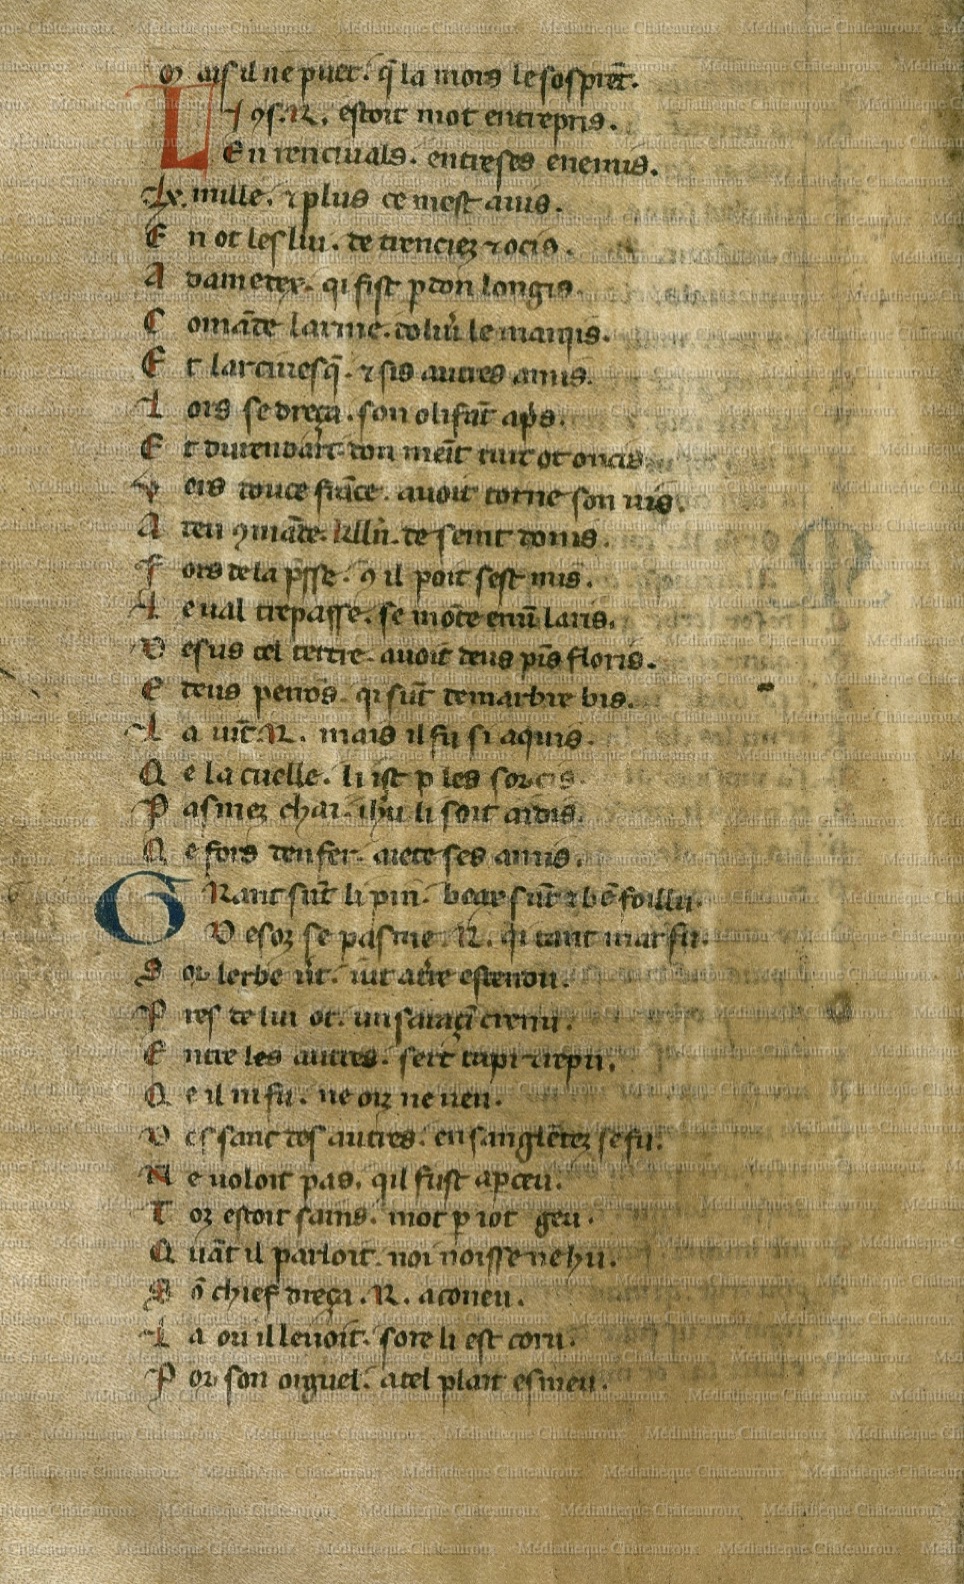 M ais il ne puet. q̄ la mors le sosprēt.
L i 9s. R. estoit mot entrepris.
En rencivals. entre ses enemis.
Lx. mille. ⁊ plus ce mest avis.
E n ot les liu. de trenciez ⁊ ocis.
A damedex. qi fist pdon longis.
C omāde larme. doliv̓ le marqis.
E t larcivesq̄. ⁊ sis autres amis.
L ors se dreça. son olifāt ap̓s.
E t durendart don mēīt tuit ot oncis.
V ers douce frāce. avoit torne son vis.
A deu 9māde. kllū. de seint donis.
F ors de la p̄sse. 9 il poit sest mis.
L e val trepasse. se mōte en un laris.
D esus cel tertre. avoit deus pīs floris.
E deus perrōs. qi sūt de marbre bis.
L a vīt. R. mais il fu si aquis.
Q e la cuelle. li ist p les sorcis.
P asmez chai. ihū li soit aidis.
Q e fors denfer. mete ses amis.
G Rant sūt li pin. beax sūt ⁊ bē foillu.
D esoz se pasme. R. qi tant mar fu.
S or lerbe v̓t. iut at̓re estendu.
P res de lui ot. un saraçī crenu.
E ntre les autres. sert tapi ⁊ repu.
Q e il ni fu. ne oiz ne veu.
D el sanc des autres. ensanglētez se fu.
N e voloit pas. qil fust apceu.
T oz estoit sains. mot p iot geu.
Q uāt il parloit. noi noisse ne hu.
S ō chief dreça. R. a coneu.
L a ou il levoit. sore li est coru.
P or son orguel. a tel plait esmeu.
Médiathèque Châteauroux